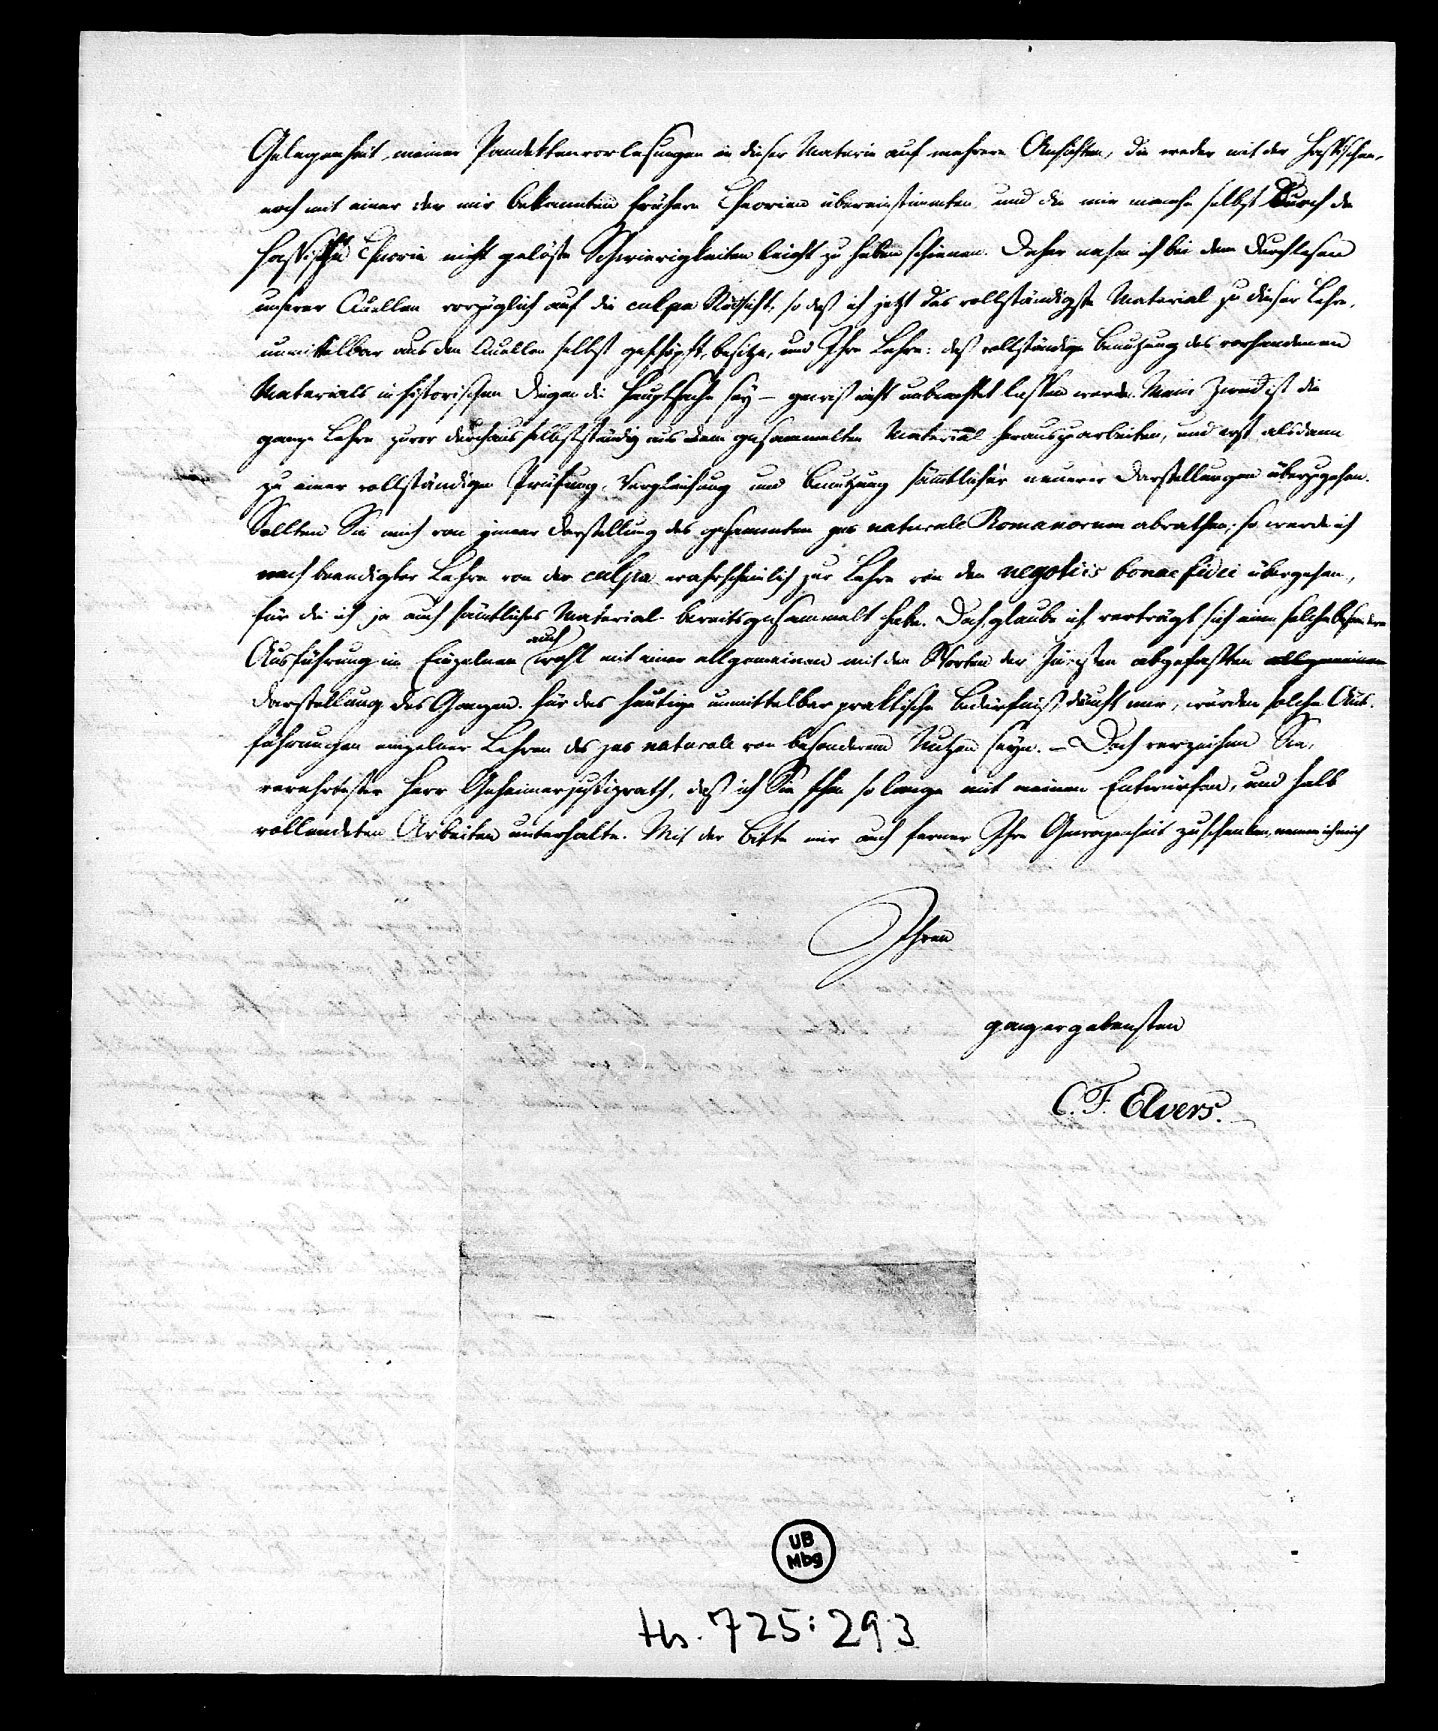 Gelegenheit meiner Pandektenvorlesungen in dieser Materie auf mehrere Ansichten, die weder mit der Hasseschen,
noch mit einer der mir bekannten frühern Theorien übereinstimmten und die mir manche selbst durch die
Hassische Theorie nicht gelöste Schwierigkeiten leicht zu heben schienen. Daher nahm ich bei dem Durchlesen
unserer Quellen vorzüglich auf die culpa Rücksicht, so daß ich jetzt das vollständigste Material zu dieser Lehre,
unmittelbar aus den Quellen selbst geschöpft, besitze, und Ihre Lehre: daß vollständige Benutzung des vorhandenen
Materials in historischen Dingen die Hauptsache sey – gewiß nicht unbeachtet lassen werde. Mein Zweck ist die
ganze Lehre zuvor durchaus selbstständig aus dem gesammelten Material herauszuarbeiten, und erst alsdann
zu einer vollständigen Prüfung, Vergleichung und Benutzung sämtlicher neuerer Darstellungen überzugehen.
Sollten Sie mich von jener Darstellung des gesammten jus naturale Romanorum abrathen, so werde ich
nach beendigter Lehre von der culpa wahrscheinlich zur Lehre von den negotiis bonae fidei übergehen,
für die ich ja auch sämtliches Material bereits gesammelt habe. Doch glaube ich verträgt sich eine solche besondere
Ausführung im Einzelnen auch wohl mit einer allgemeinen mit den Worten der Juristen abgefaßten allgemeinen
Darstellung des Ganzen. Für das heutige unmittelbar praktische Bedürfniß däucht mir, würden solche Aus-
führungen einzelner Lehren des jus naturale von besonderem Nutzen seyn. – Doch verzeihen Sie,
verehrtester Herr Geheimerjustizrath, daß ich Sie schon so lange mit meinen Entwürfen, und halb
vollendeten Arbeiten unterhalte. Mit der Bitte mir auch ferner Ihre Gewogenheit zu schenken, nenne ich mich
Ihren
ganz ergebensten
C. F. Elvers.
UB
Mbg
Hs. 725:293